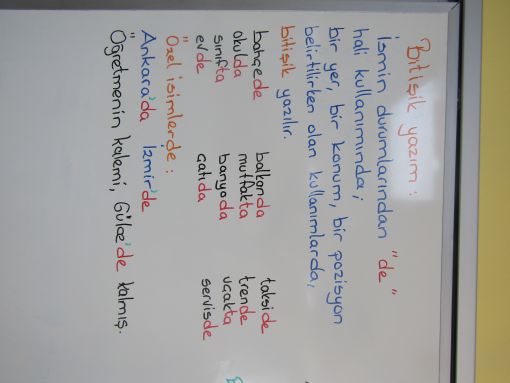 Bitişik yazım :
İsmin durumlarından "de"
hali kullanımında;
bir yer, bir konum, bir pozisyon
belirtilirken olan kullanımlarda,
bitişik yazılır.
bahçede balkonda takside
okulda mutfakta trende
sınıfta banyoda uçakta
evde çatıda serviste
"Özel isimlerde :
Ankara'da İzmir'de
Öğretmenin kalemi, Gülce'de kalmış.